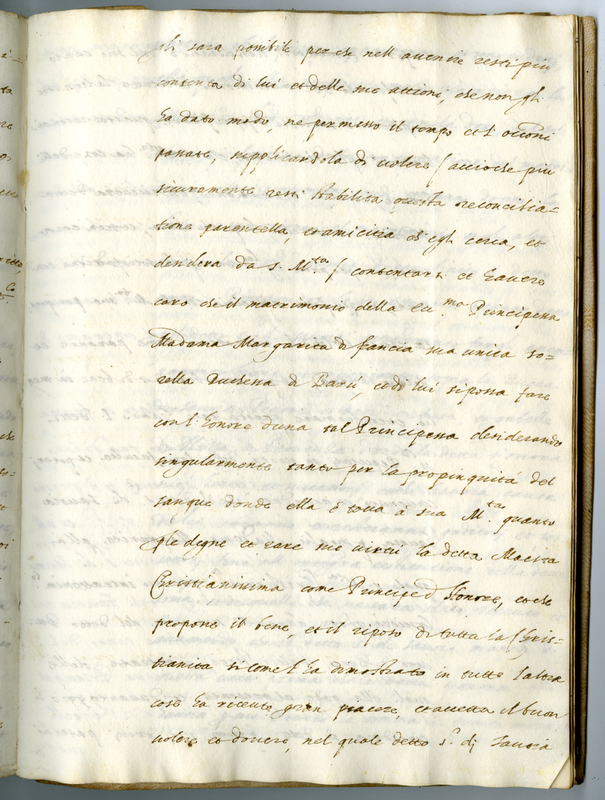 gli sara possibile perche nell avenire resti piu
contenta di lui et delle sue attioni, che non gli
ha dato modo, ne permesso il tempo et l'occasioni
passate, supplicandola di volere ( accioche piu
sicuramente resti stabilita questa reconcilia=
tione parentella, et amicitia ch'egli cerca, et
desidera da S. M.ta ( contentarsi et havere
caro che il matrimonio della Ill.ma Principessa
Madama Margarita di francia sua unica so=
rella Duchessa di Barii, et di lui si possa fare
con l'honore d'una tal Principessa desiderando
singularmente tanto per la propinquità del
sangue donde ella è tova à sua M.ta quanto
le degne et rare sue virtù la detta Maestà
Christianissima come Principe d'honore, et che
propone il bene, et il riposo di tutta la Chris=
tianita si come l'ha dimostrato in tutte l'altre
cose ha ricevuto gran piacere, et accetta il buon
volere et dovere, nel quale detto S.r di Savoia